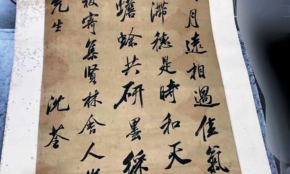 月遠相過佳氣
滯穗是時和天
蟾蜍共研墨綵
板寄集賢林舍人
先生
沈荃